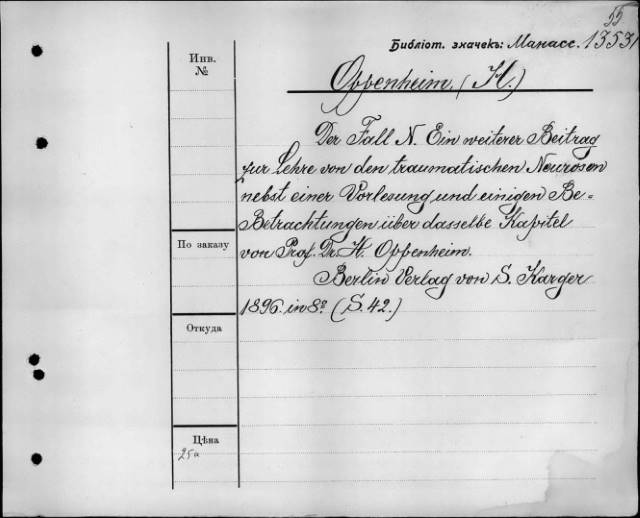 55
Библіот. значекъ: Манасс. 13531
Инв.
№
Oppenheim. (H.)
Der Fall N. Ein weiterer Beitrag
zur Lehre von den traumatischen Neurosen
nebst einer Vorlesung und einigen Be-
Betrachtungen über dasselbe Kapitel
По заказу
von Prof. Dr. H. Oppenheim.
Berlin Verlag von S. Karger
1896. in 8º (S. 42.)
Откуда
Цѣна
25a